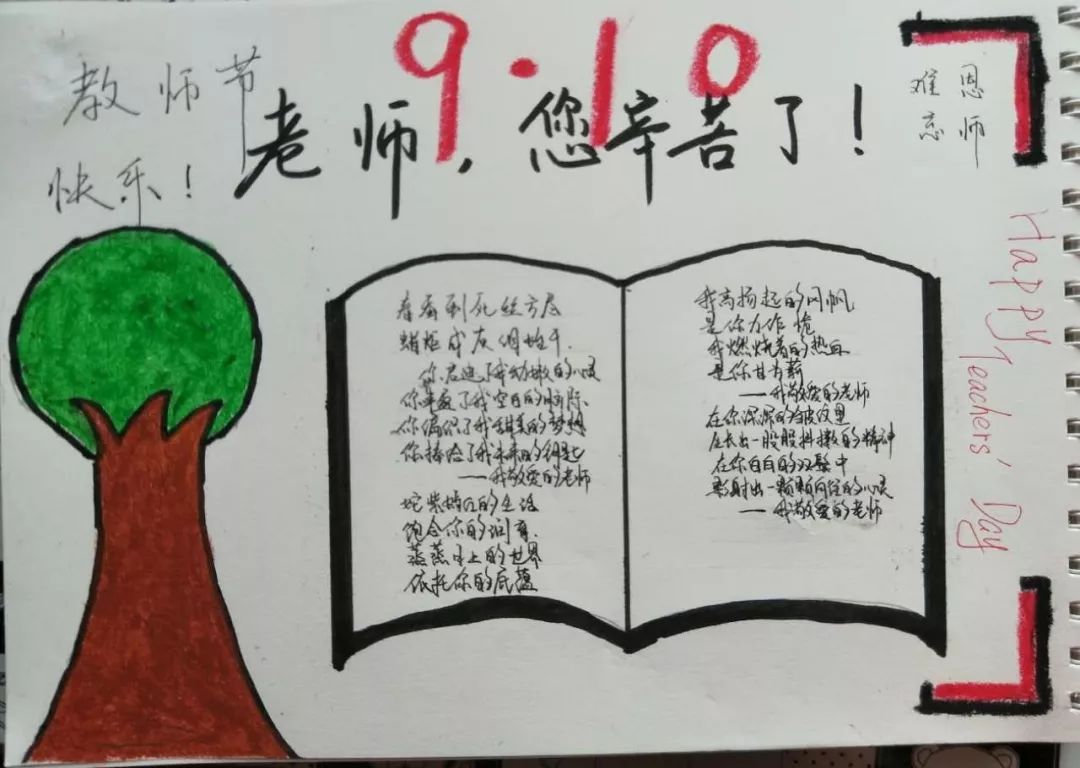 9·10
教师节
快乐！
老师，您辛苦了！
恩师
难忘
春蚕到死丝方尽
蜡炬成灰泪始干.
你启迪了我幼嫩的心灵
你丰盈了我空白的脑际
你编织了我甜美的梦想
你捧给了我未来的钥匙
——我敬爱的老师
的生活
饱含你的润育.
蒸蒸日上的世界
依托你的底蕴
我高扬起的风帆
是你为作桅
我燃烧着的热血
是你甘为薪
——我敬爱的老师
在你深深的皱纹里
生长出一股股抖擞的精神
在你白白的双鬓中
影射出一颗颗向往的心灵
——我敬爱的老师
Happy Teachers' Day